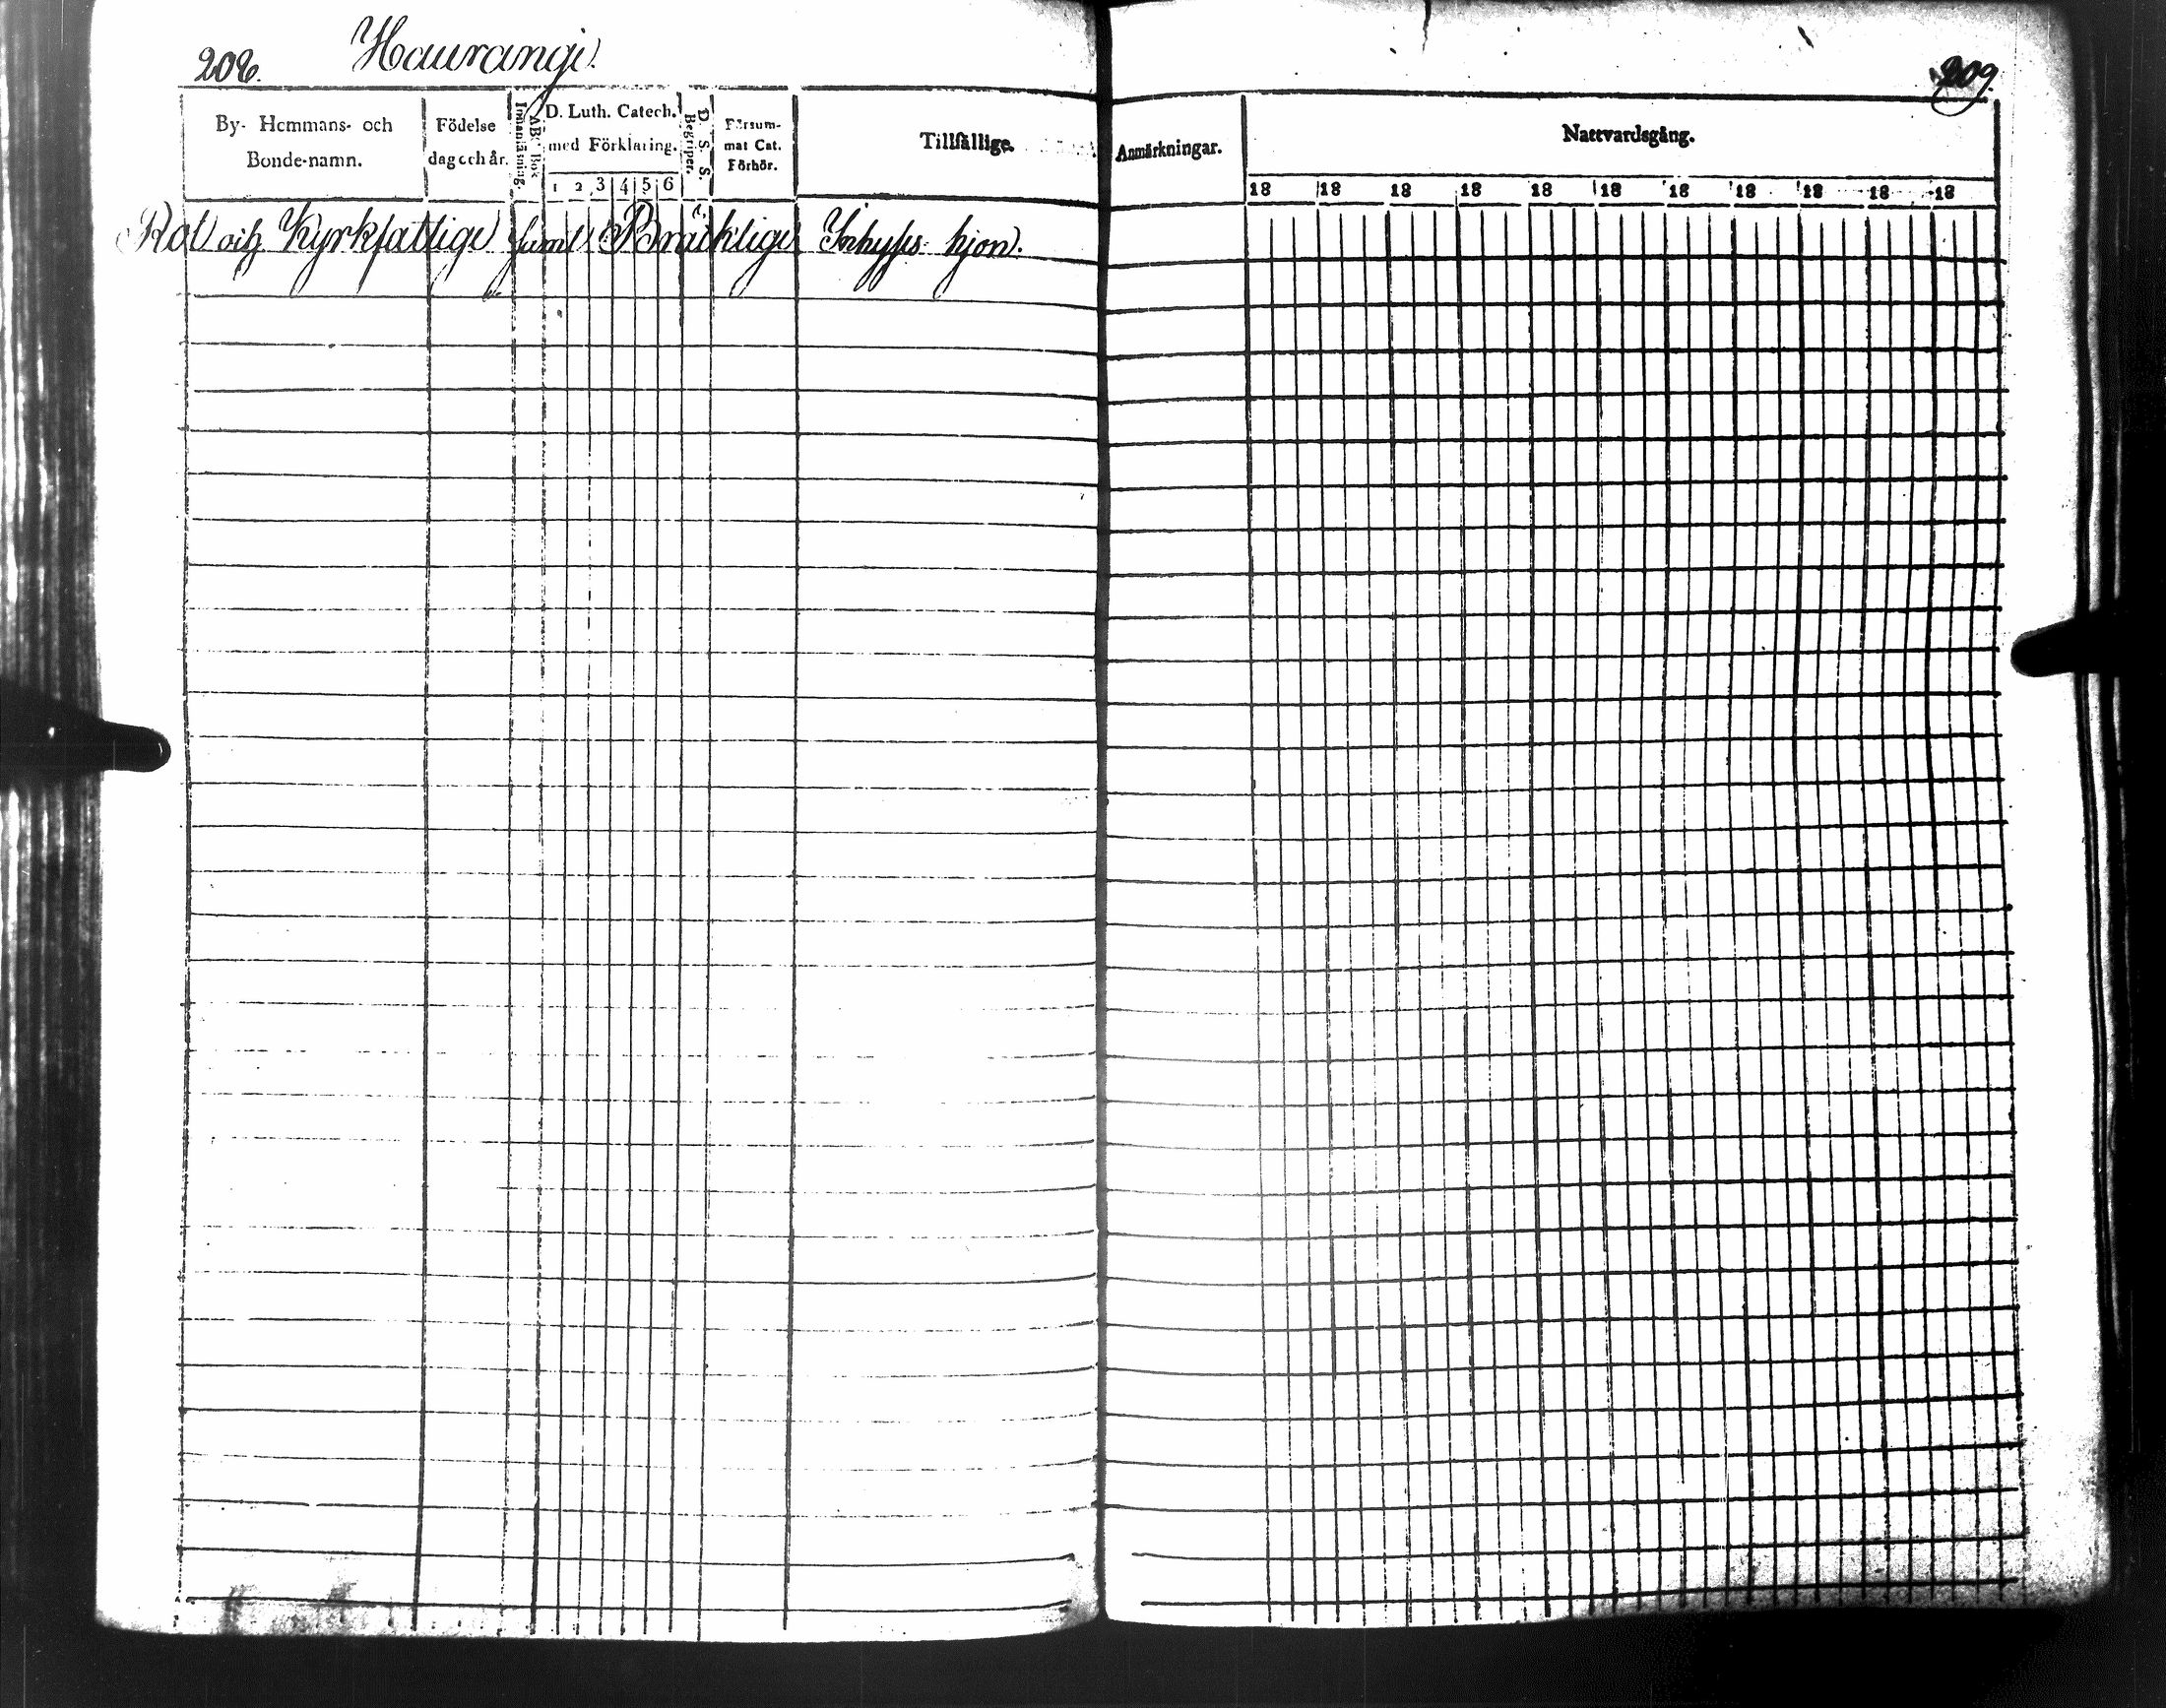 208.
Haurangi.
209.
By- Hemmans- och
Bonde-namn.
Födelse
dag och år.
ABC Bok
Innanläsning.
D. Luth. Catech.
med Förklaring.
1 2 3 4 5 6
D. S. S.
Begriper.
Försum-
mat Cat.
Förhör.
Tillfällige.
Anmärkningar.
Nattvardsgång.
18 18 18 18 18 18 18 18 18 18 18
Rot och Kyrkfattige samt Bräcklige Inhyses hjon.